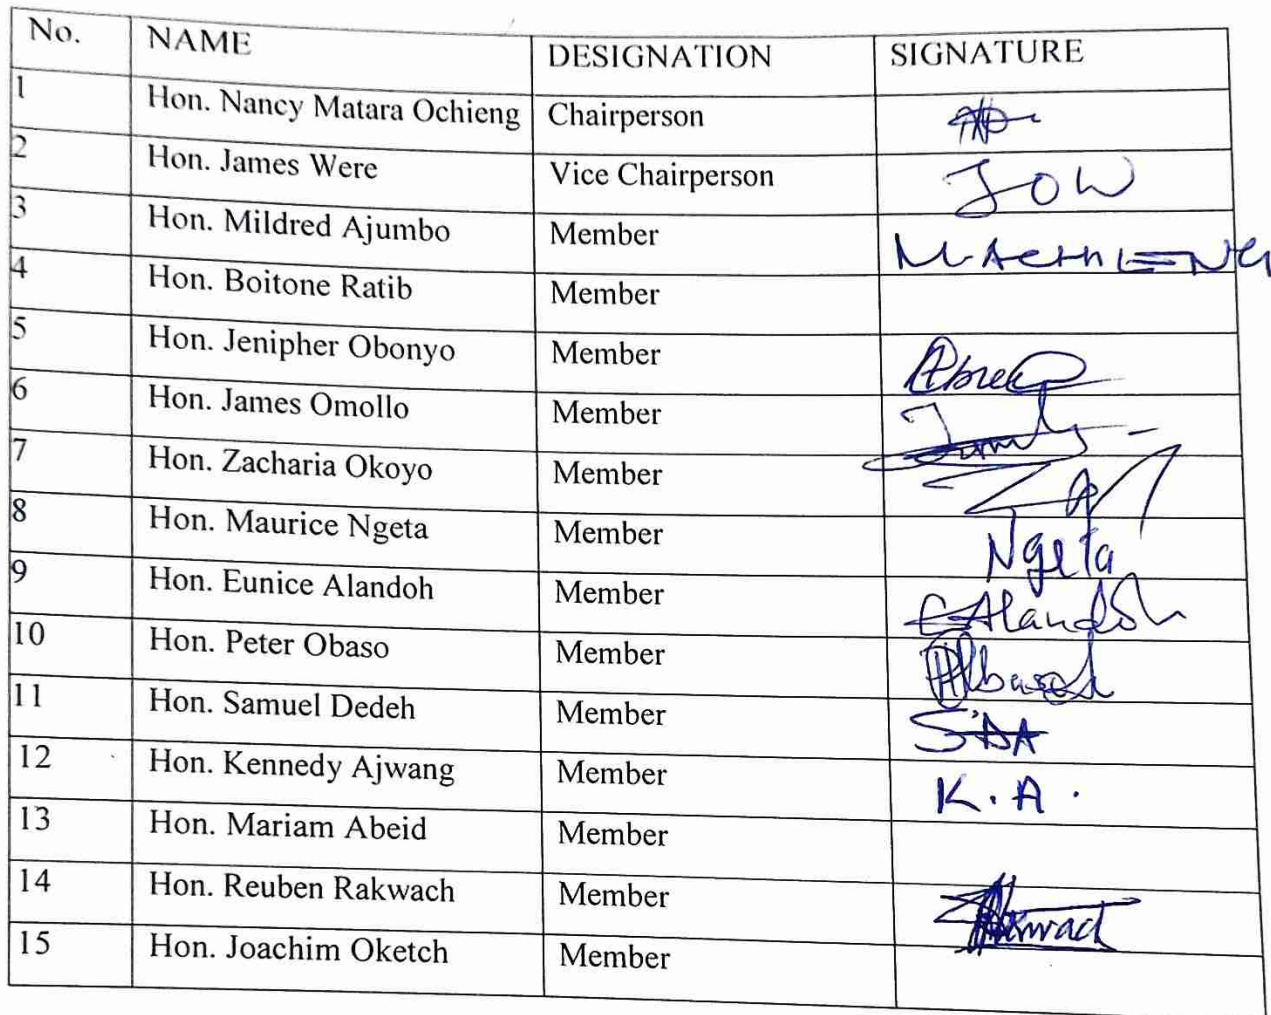 No. NAME DESIGNATION SIGNATURE
1 Hon. Nancy Matara Ochieng Chairperson
2 Hon. James Were Vice Chairperson JOW
3 Hon. Mildred Ajumbo Member
4 Hon. Boitone Ratib Member
5 Hon. Jenipher Obonyo Member
6 Hon. James Omollo Member
7 Hon. Zacharia Okoyo Member
8 Hon. Maurice Ngeta Member Ngeta
9 Hon. Eunice Alandoh Member EAlandoh
10 Hon. Peter Obaso Member
11 Hon. Samuel Dedeh Member SDA
12 Hon. Kennedy Ajwang Member K.A.
13 Hon. Mariam Abeid Member
14 Hon. Reuben Rakwach Member
15 Hon. Joachim Oketch Member